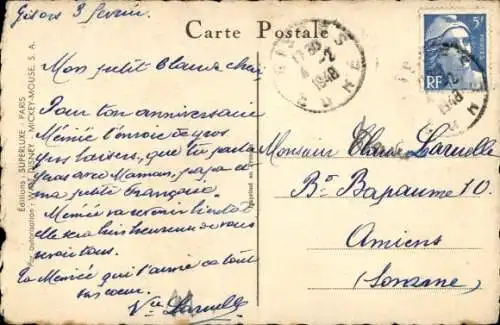 Gisors 3 février.
Carte Postale
Mon petit Claude chéri
Pour ton anniversaire
Mémée t'envoie de gros
gros baisers, que tu partageras
avec Maman, papa et
ta petite Françoise.
Mémée va revenir bientôt
elle sera bien heureuse de vous
revoir tous.
ta Mémée qui t'aime de tout
son cœur.
Vve Laruelle
Monsieur Claude Laruelle
Bd Bapaume 10
Amiens
(Somme)
Editions : SUPERLUXE - PARIS
Par autorisation : WALT DISNEY - MICKEY-MOUSE, S. A.
GISORS
17 30
4 -2
1948
EURE
5F
RF
1948